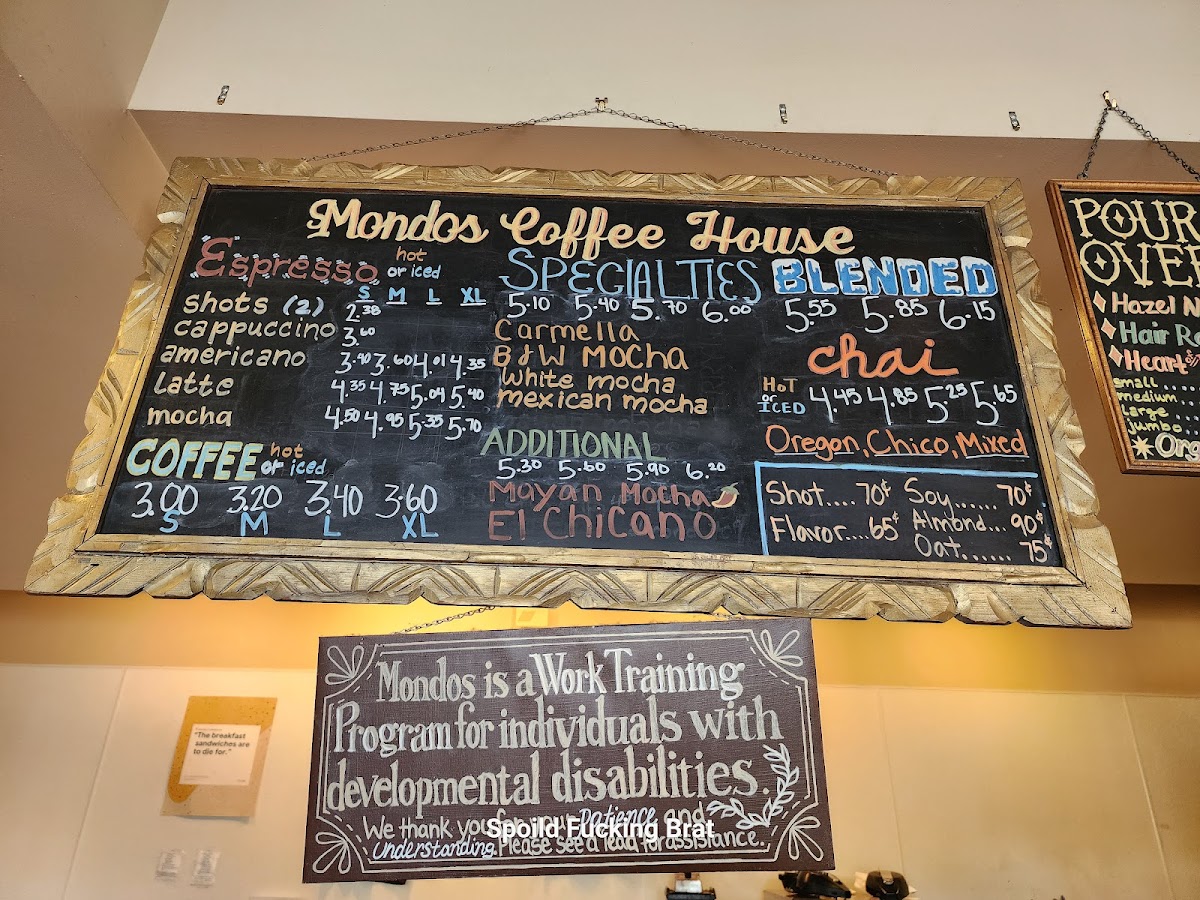 Mondos Coffee House
Espresso hot or iced
S M L XL
shots (2) 2.38
cappuccino 3.60
americano 3.40 3.60 4.01 4.35
latte 4.35 4.75 5.04 5.40
mocha 4.50 4.95 5.35 5.70
COFFEE hot or iced
3.00 3.20 3.40 3.60
S M L XL
SPECIALTIES
5.10 5.40 5.70 6.00
Carmella
B&W Mocha
White mocha
mexican mocha
ADDITIONAL
5.30 5.60 5.90 6.20
Mayan Mocha
El Chicano
BLENDED
5.55 5.85 6.15
chai
HOT or ICED 4.45 4.85 5.25 5.65
Oregon, Chico, Mixed
Shot....70¢ Soy......70¢
Flavor....65¢ Almond...90¢
Oat......75¢
POUR
OVE
Hazel N
Hair R
Heart
small....
medium....
Large....
jumbo..
Org
Mondos is a Work Training
Program for individuals with
developmental disabilities.
We thank you for your Patience and
Understanding. Please see a lead for assistance.
Spoild Fucking Brat
"The breakfast
sandwiches are
to die for."